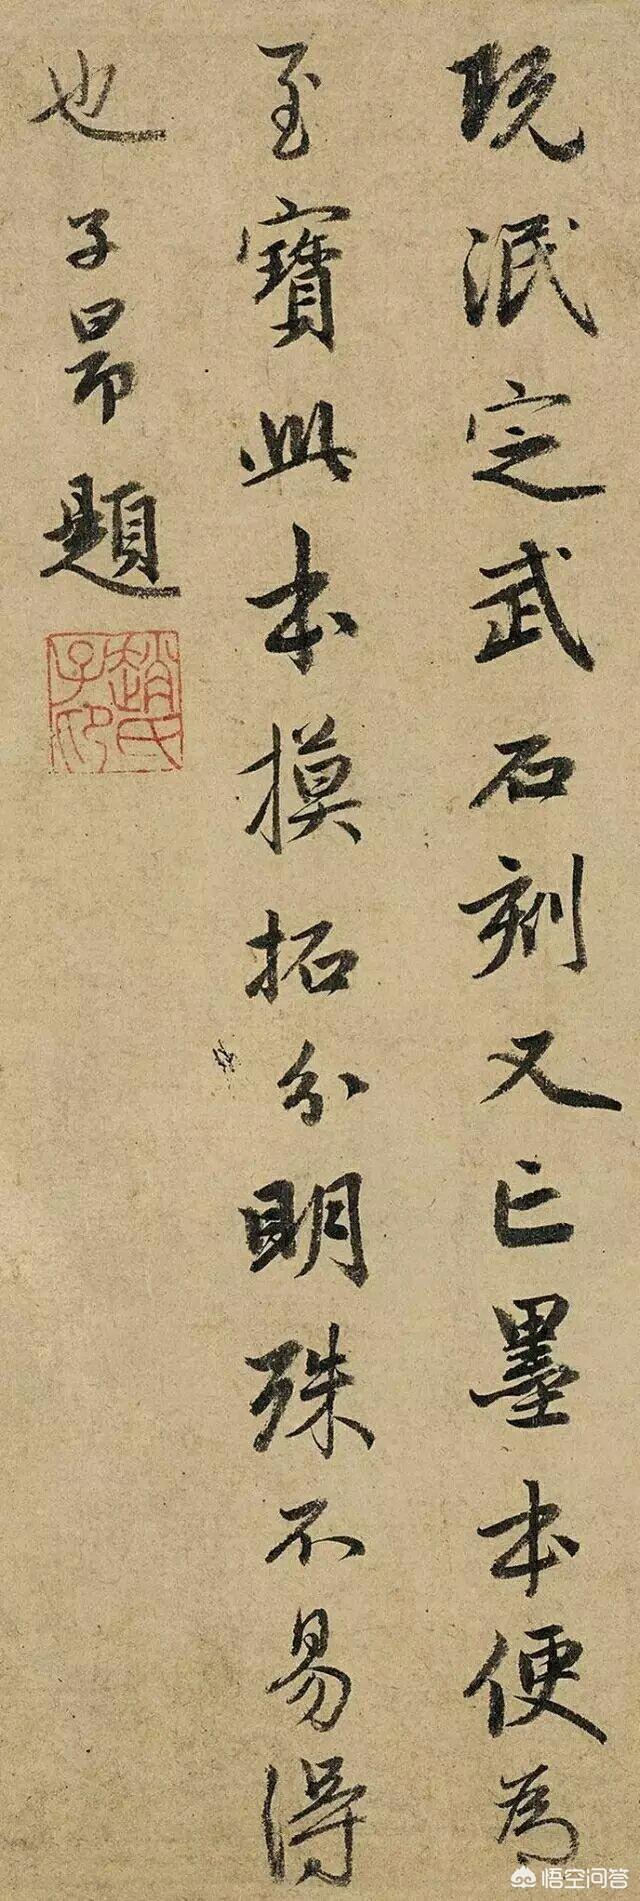 既泯定武石刻又亡墨本便為
至寶此本摸拓分明殊不易得
也子昂題
趙氏子昂
悟空问答